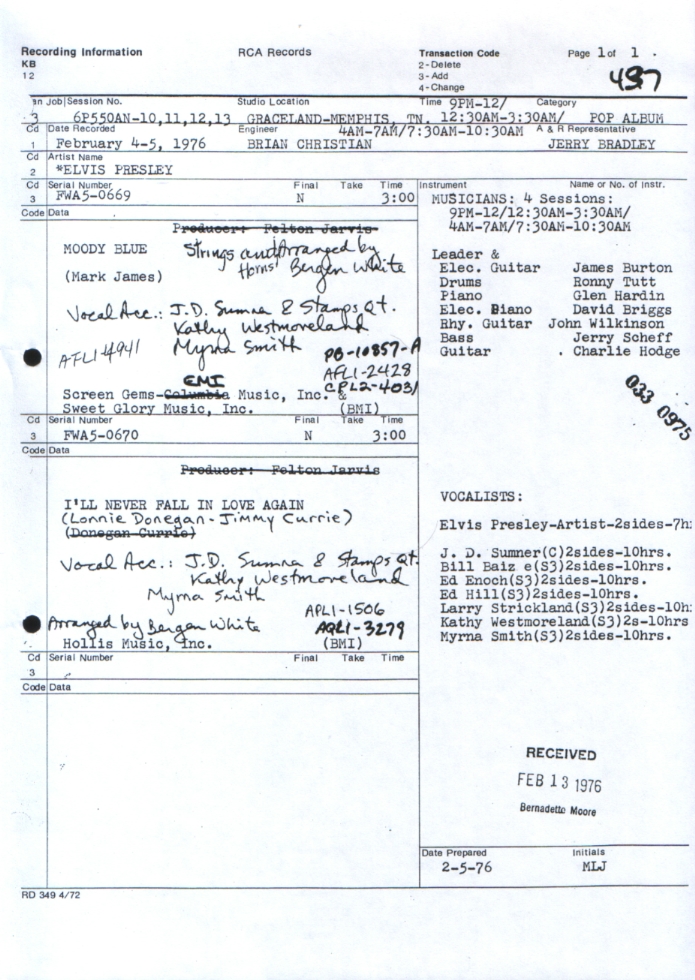 Recording Information RCA Records Transaction Code Page 1 of 1 .
KB 2-Delete
12 3-Add 497
4-Change
Job Session No. Studio Location Time 9PM-12/ Category
3 6P550AN-10,11,12,13 GRACELAND-MEMPHIS, TN. 12:30AM-3:30AM/ POP ALBUM
Cd Date Recorded Engineer 4AM-7AM/7:30AM-10:30AM A & R Representative
1 February 4-5, 1976 BRIAN CHRISTIAN JERRY BRADLEY
Cd Artist Name
2 *ELVIS PRESLEY
Cd Serial Number Final Take Time
3 FWA5-0669 N 3:00
Code Data
Producer: Felton Jarvis
MOODY BLUE Strings and Arranged by
Horns Bergen White
(Mark James)
Vocal Acc.: J.D. Sumner & Stamps Qt.
Kathy Westmoreland
Myrna Smith
AFL1-4941
PB-10857-A
AFL1-2428
CPL2-4031
EMI
Screen Gems-Columbia Music, Inc. &
Sweet Glory Music, Inc. (BMI)
Cd Serial Number Final Take Time
3 FWA5-0670 N 3:00
Code Data
Producer: Felton Jarvis
I'LL NEVER FALL IN LOVE AGAIN
(Lonnie Donegan-Jimmy Currie)
(Donegan-Currie)
Vocal Acc.: J.D. Sumner & Stamps Qt.
Kathy Westmoreland
Myrna Smith
APL1-1506
Arranged by Bergen White AQL1-3279
Hollis Music, Inc. (BMI)
Cd Serial Number Final Take Time
3
Code Data
Instrument Name or No. of Instr.
MUSICIANS: 4 Sessions:
9PM-12/12:30AM-3:30AM/
4AM-7AM/7:30AM-10:30AM
Leader &
Elec. Guitar James Burton
Drums Ronny Tutt
Piano Glen Hardin
Elec. Piano David Briggs
Rhy. Guitar John Wilkinson
Bass Jerry Scheff
Guitar . Charlie Hodge
033 0975
VOCALISTS:
Elvis Presley-Artist-2sides-7h
J. D. Sumner(C)2sides-10hrs.
Bill Baiz e(S3)2sides-10hrs.
Ed Enoch(S3)2sides-10hrs.
Ed Hill(S3)2sides-10hrs.
Larry Strickland(S3)2sides-10h
Kathy Westmoreland(S3)2s-10hrs
Myrna Smith(S3)2sides-10hrs.
RECEIVED
FEB 13 1976
Bernadette Moore
Date Prepared Initials
2-5-76 MLJ
RD 349 4/72